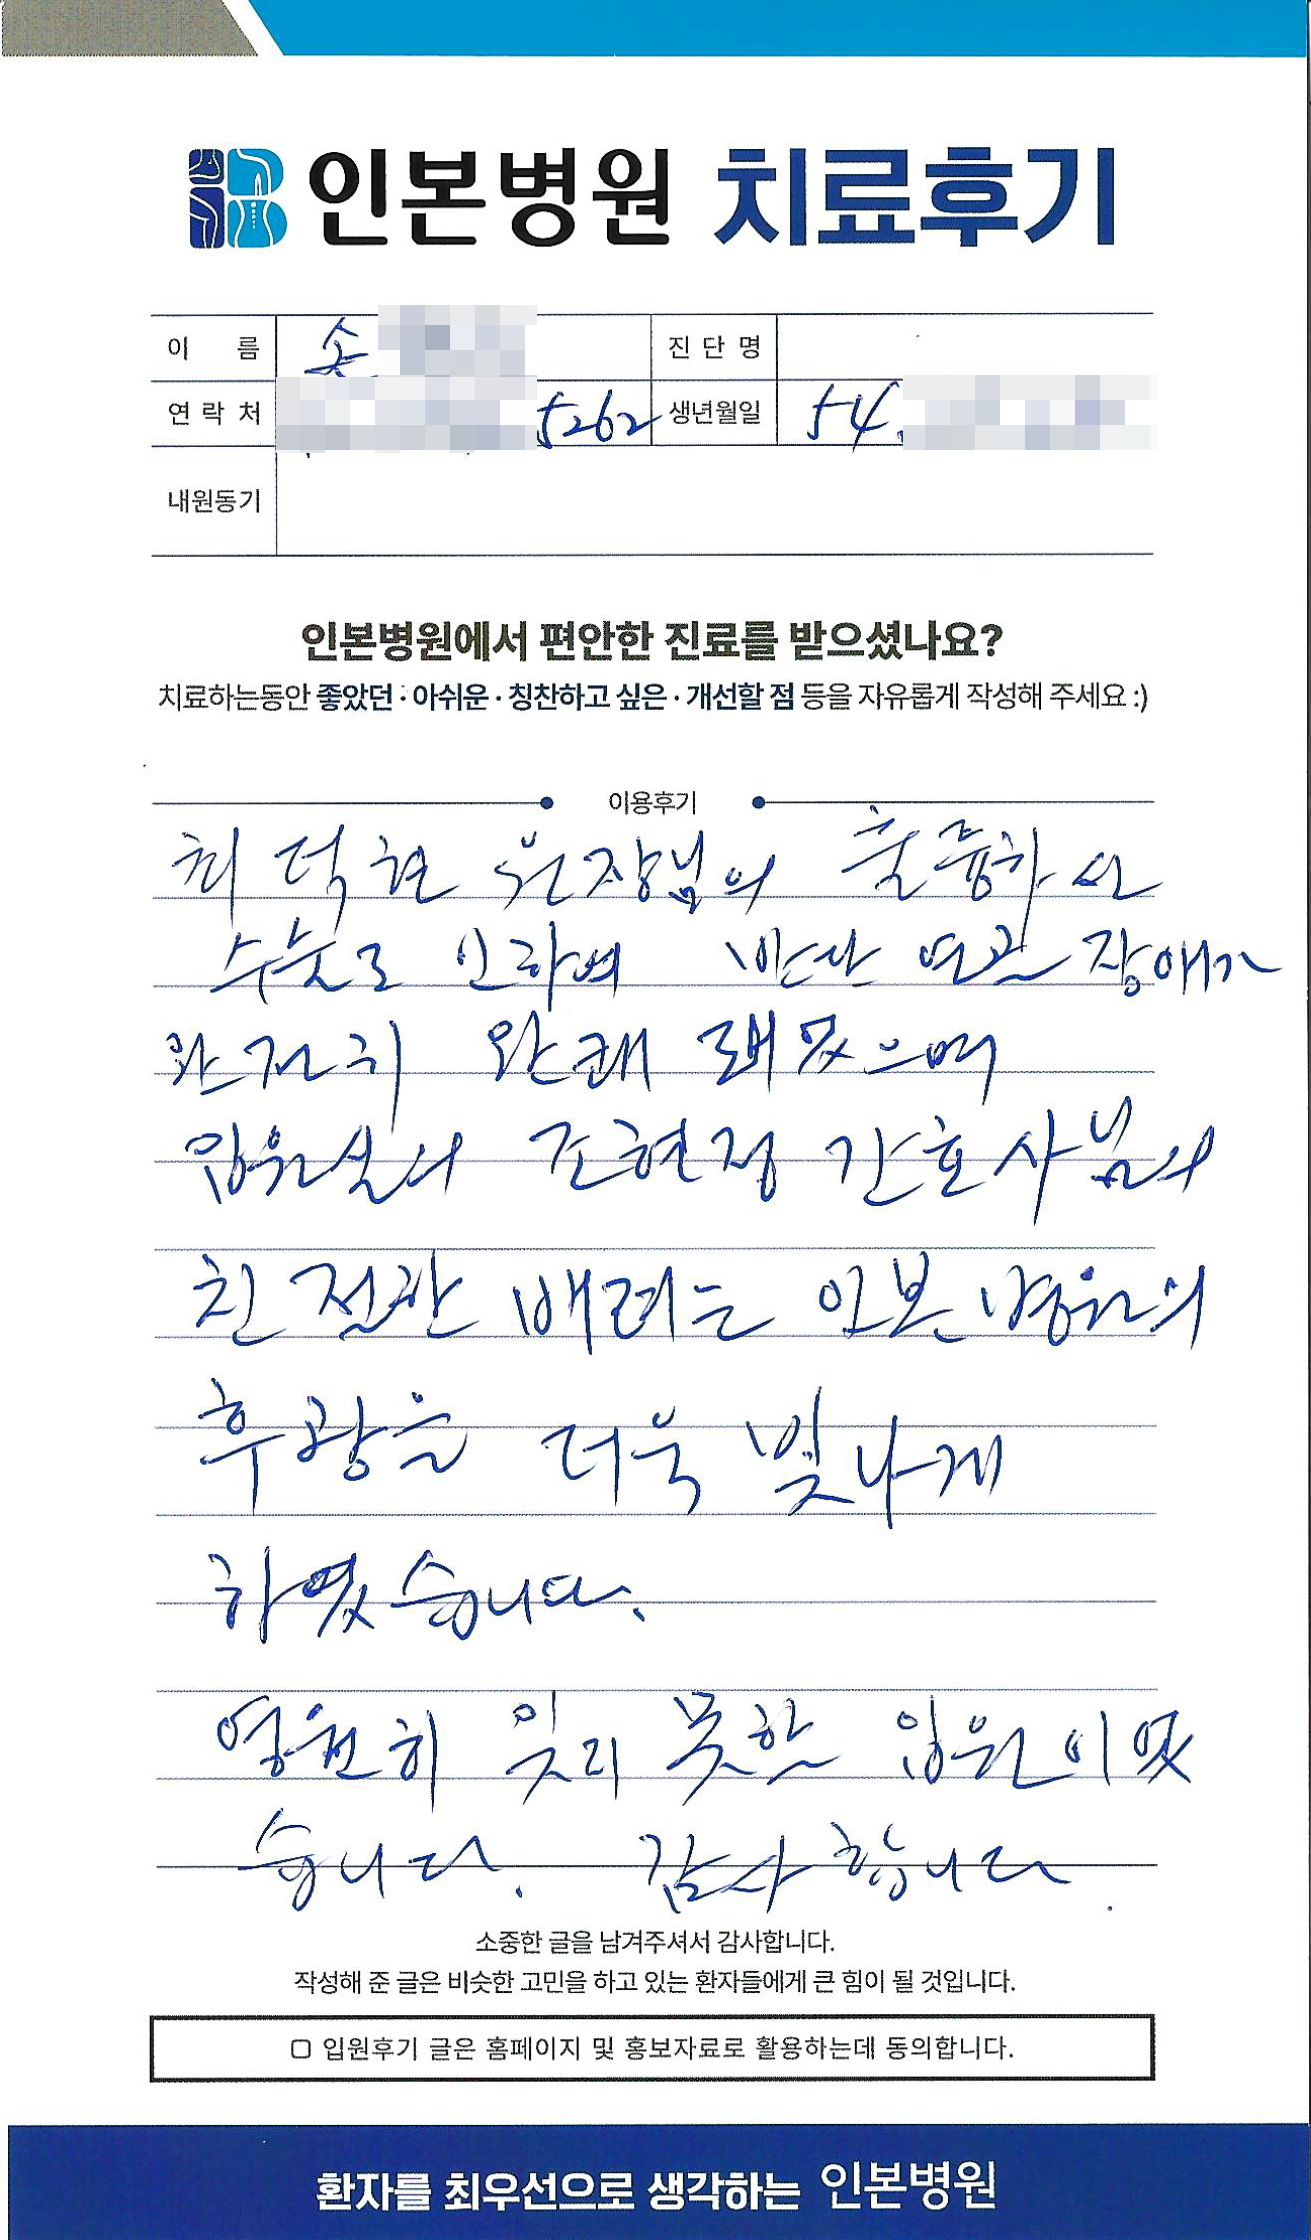 인본병원 치료후기
이 름 송 진 단 명
연 락 처 5262 생년월일 54.
내원동기
인본병원에서 편안한 진료를 받으셨나요?
치료하는동안 좋았던 · 아쉬운 · 칭찬하고 싶은 · 개선할 점 등을 자유롭게 작성해 주세요 :)
이용후기
최덕현 원장님의 훌륭하신
수술로 인하여 반산 연관 장애가
완전히 완쾌 됐으며
입원실의 조현정 간호사님의
친절한 배려는 인본병원의
후광을 더욱 빛나게
하였습니다.
영원히 잊지 못할 입원이였
습니다. 감사합니다.
소중한 글을 남겨주셔서 감사합니다.
작성해 준 글은 비슷한 고민을 하고 있는 환자들에게 큰 힘이 될 것입니다.
□ 입원후기 글은 홈페이지 및 홍보자료로 활용하는데 동의합니다.
환자를 최우선으로 생각하는 인본병원